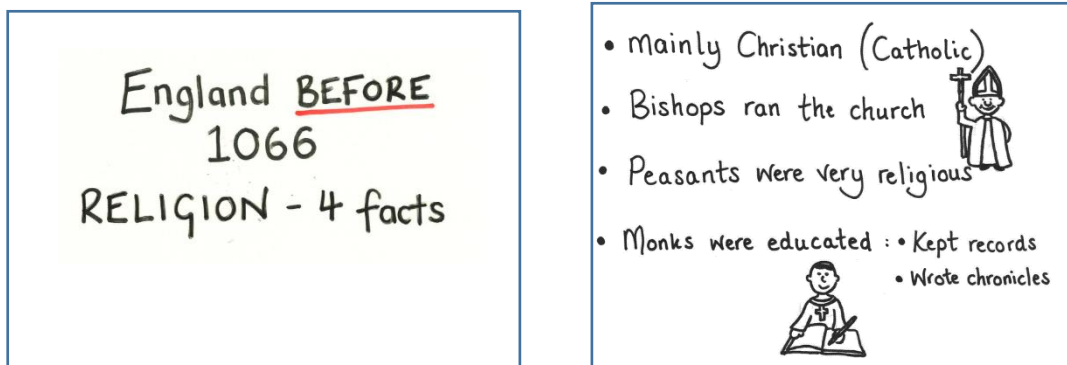 England BEFORE
1066
RELIGION - 4 facts
• mainly Christian (Catholic)
• Bishops ran the church
• Peasants were very religious
• Monks were educated : • Kept records
• Wrote chronicles